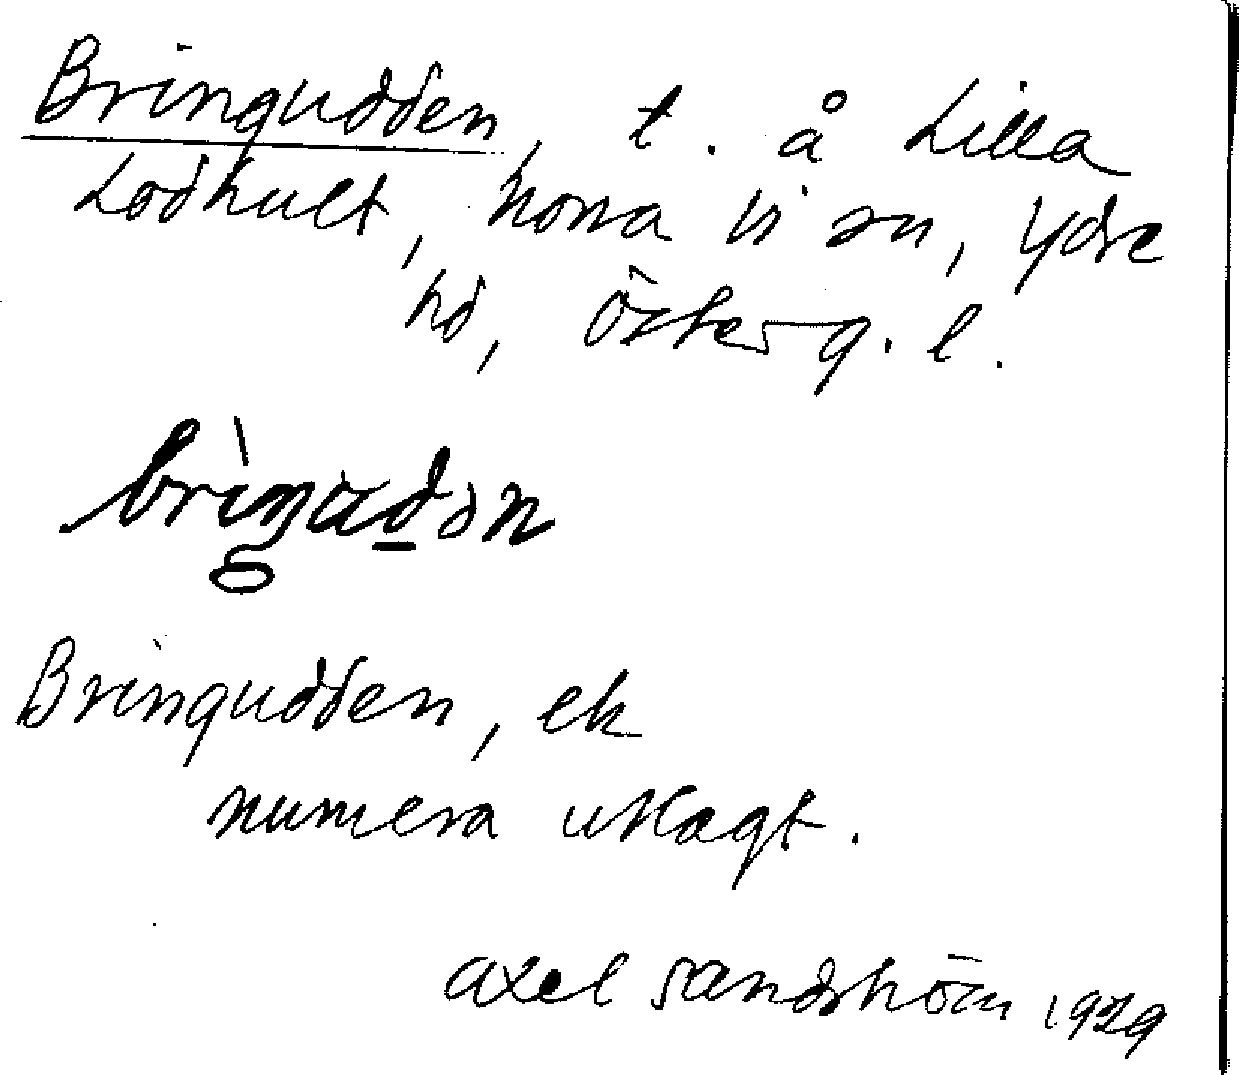 Bringudden, t. å Lilla
Lodhult, Norra Vi sn, Ydre
hd, Österg. l.
Bringudden, ek
numera utlagt.
Axel Sandström 1929